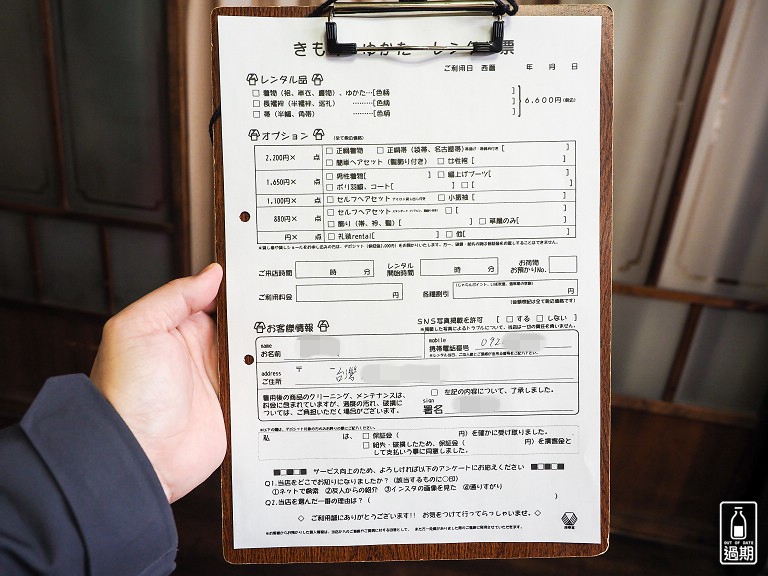 きも ゆかた レンタ 票
ご利用日 西暦 年 月 日
レンタル品
□ 着物(袷、単衣、薄物)、ゆかた…[色柄 ]
□ 長襦袢(半襦袢、巡礼) ………[色柄 ]
□ 帯(半幅、角帯) ………[色柄 ]
6,600円(税込)
オプション (全て税込価格)
2,200円× 点 □ 正絹着物 □ 正絹帯(袋帯、名古屋帯) [ ]
□ 簡単ヘアセット(髪飾り付き) □ 女性袴 [ ]
1,650円× 点 □ 男性着物[ ] □ 編上げブーツ[ ]
□ ポリ羽織、コート[ ] □ [ ]
1,100円× 点 □ セルフヘアセット □ 小振袖 [ ]
880円× 点 □ セルフヘアセット □ [ ]
□ 飾り(帯、衿、髪) [ ] □ 草履のみ[ ]
円× 点 □ 礼装rental[ ] □ 他[ ]
ご来店時間 時 分
レンタル開始時間 時 分
お荷物お預かりNo.
ご利用料金 円
各種割引 円
(金額表記は全て税込価格です)
SNS写真掲載を許可 [ □ する □ しない ]
※掲載した写真によるトラブルについて、当店は一切の責任を負いません。
お客様情報
name
お名前
mobile
携帯電話番号 092
address
ご住所 〒 -
台灣
着用後の商品のクリーニング、メンテナンスは、
料金に含まれていますが、過度の汚れ、破損に
ついては、ご負担いただく場合がございます。
□ 左記の内容について、了承しました。
sign
署名
私 は、 □ 保証金( 円)を確かに受け取りました。
□ 紛失・破損したため、保証金( 円)を損害金と
して支払いう事に同意しました。
サービス向上のため、よろしければ以下のアンケートにお答えください
Q1.当店をどこでお知りになりましたか?(該当するものに○印)
①ネットで検索 ②友人からの紹介 ③インスタの画像を見た ④通りすがり
Q2.当店を選んだ一番の理由は?( )
◇ ご利用誠にありがとうございます!! お気をつけて行ってらっしゃいませ。◇
OUT OF DATE
過期